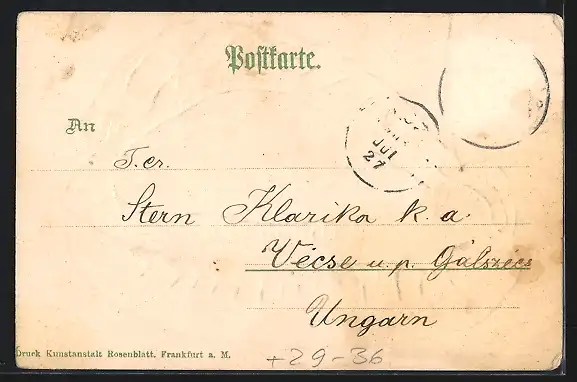 Postkarte.
An
JUL
27
T. cz.
Stern Klarika k. a.
Vécse u. p. Gálszécs
Ungarn
Druck Kunstanstalt Rosenblatt, Frankfurt a. M.
+29-36